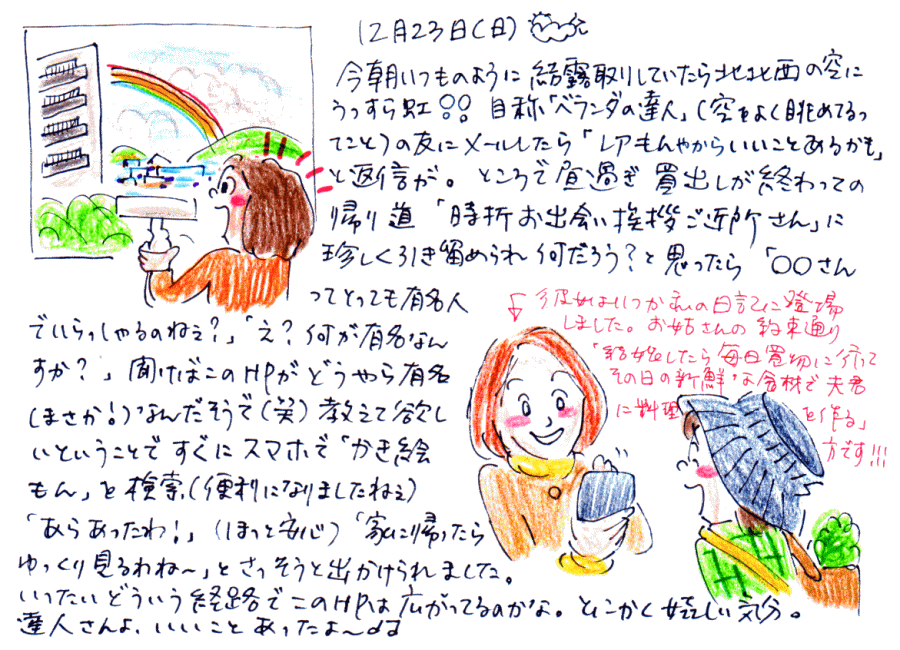 12月23日(日)
今朝いつものように結露取りしていたら北北西の空に
うっすら虹!! 自称「ベランダの達人」(空をよく眺めてるっ
てこと)の友にメールしたら「レアもんやからいいことあるかも」
と返信が。ところで昼過ぎ買出しが終わっての
帰り道「時折お出会い挨拶ご近所さん」に
珍しく引き留められ何だろう?と思ったら「〇〇さん
ってとっても有名人
でいらっしゃるのねぇ?」「え?何が有名なん
すか?」聞けばこのHPがどうやら有名
(まさか!)なんだそうで(笑)教えて欲し
いということですぐにスマホで「かき絵
もん」と検索(便利になりましたねぇ)
「あらあったわ!」(ほっと安心)「家に帰ったら
ゆっくり見るわね〜」とさっそうと出かけられました。
いったいどういう経路でこのHPは広がってるのかな。とにかく嬉しい気分。
達人さんよ、いいことあったよ〜
↓彼女はいつか私の日記に登場
しました。お姑さんの約束通り
「結婚したら毎日買物に行って
その日の新鮮な食材で夫君
に料理を作る」
方です!!!